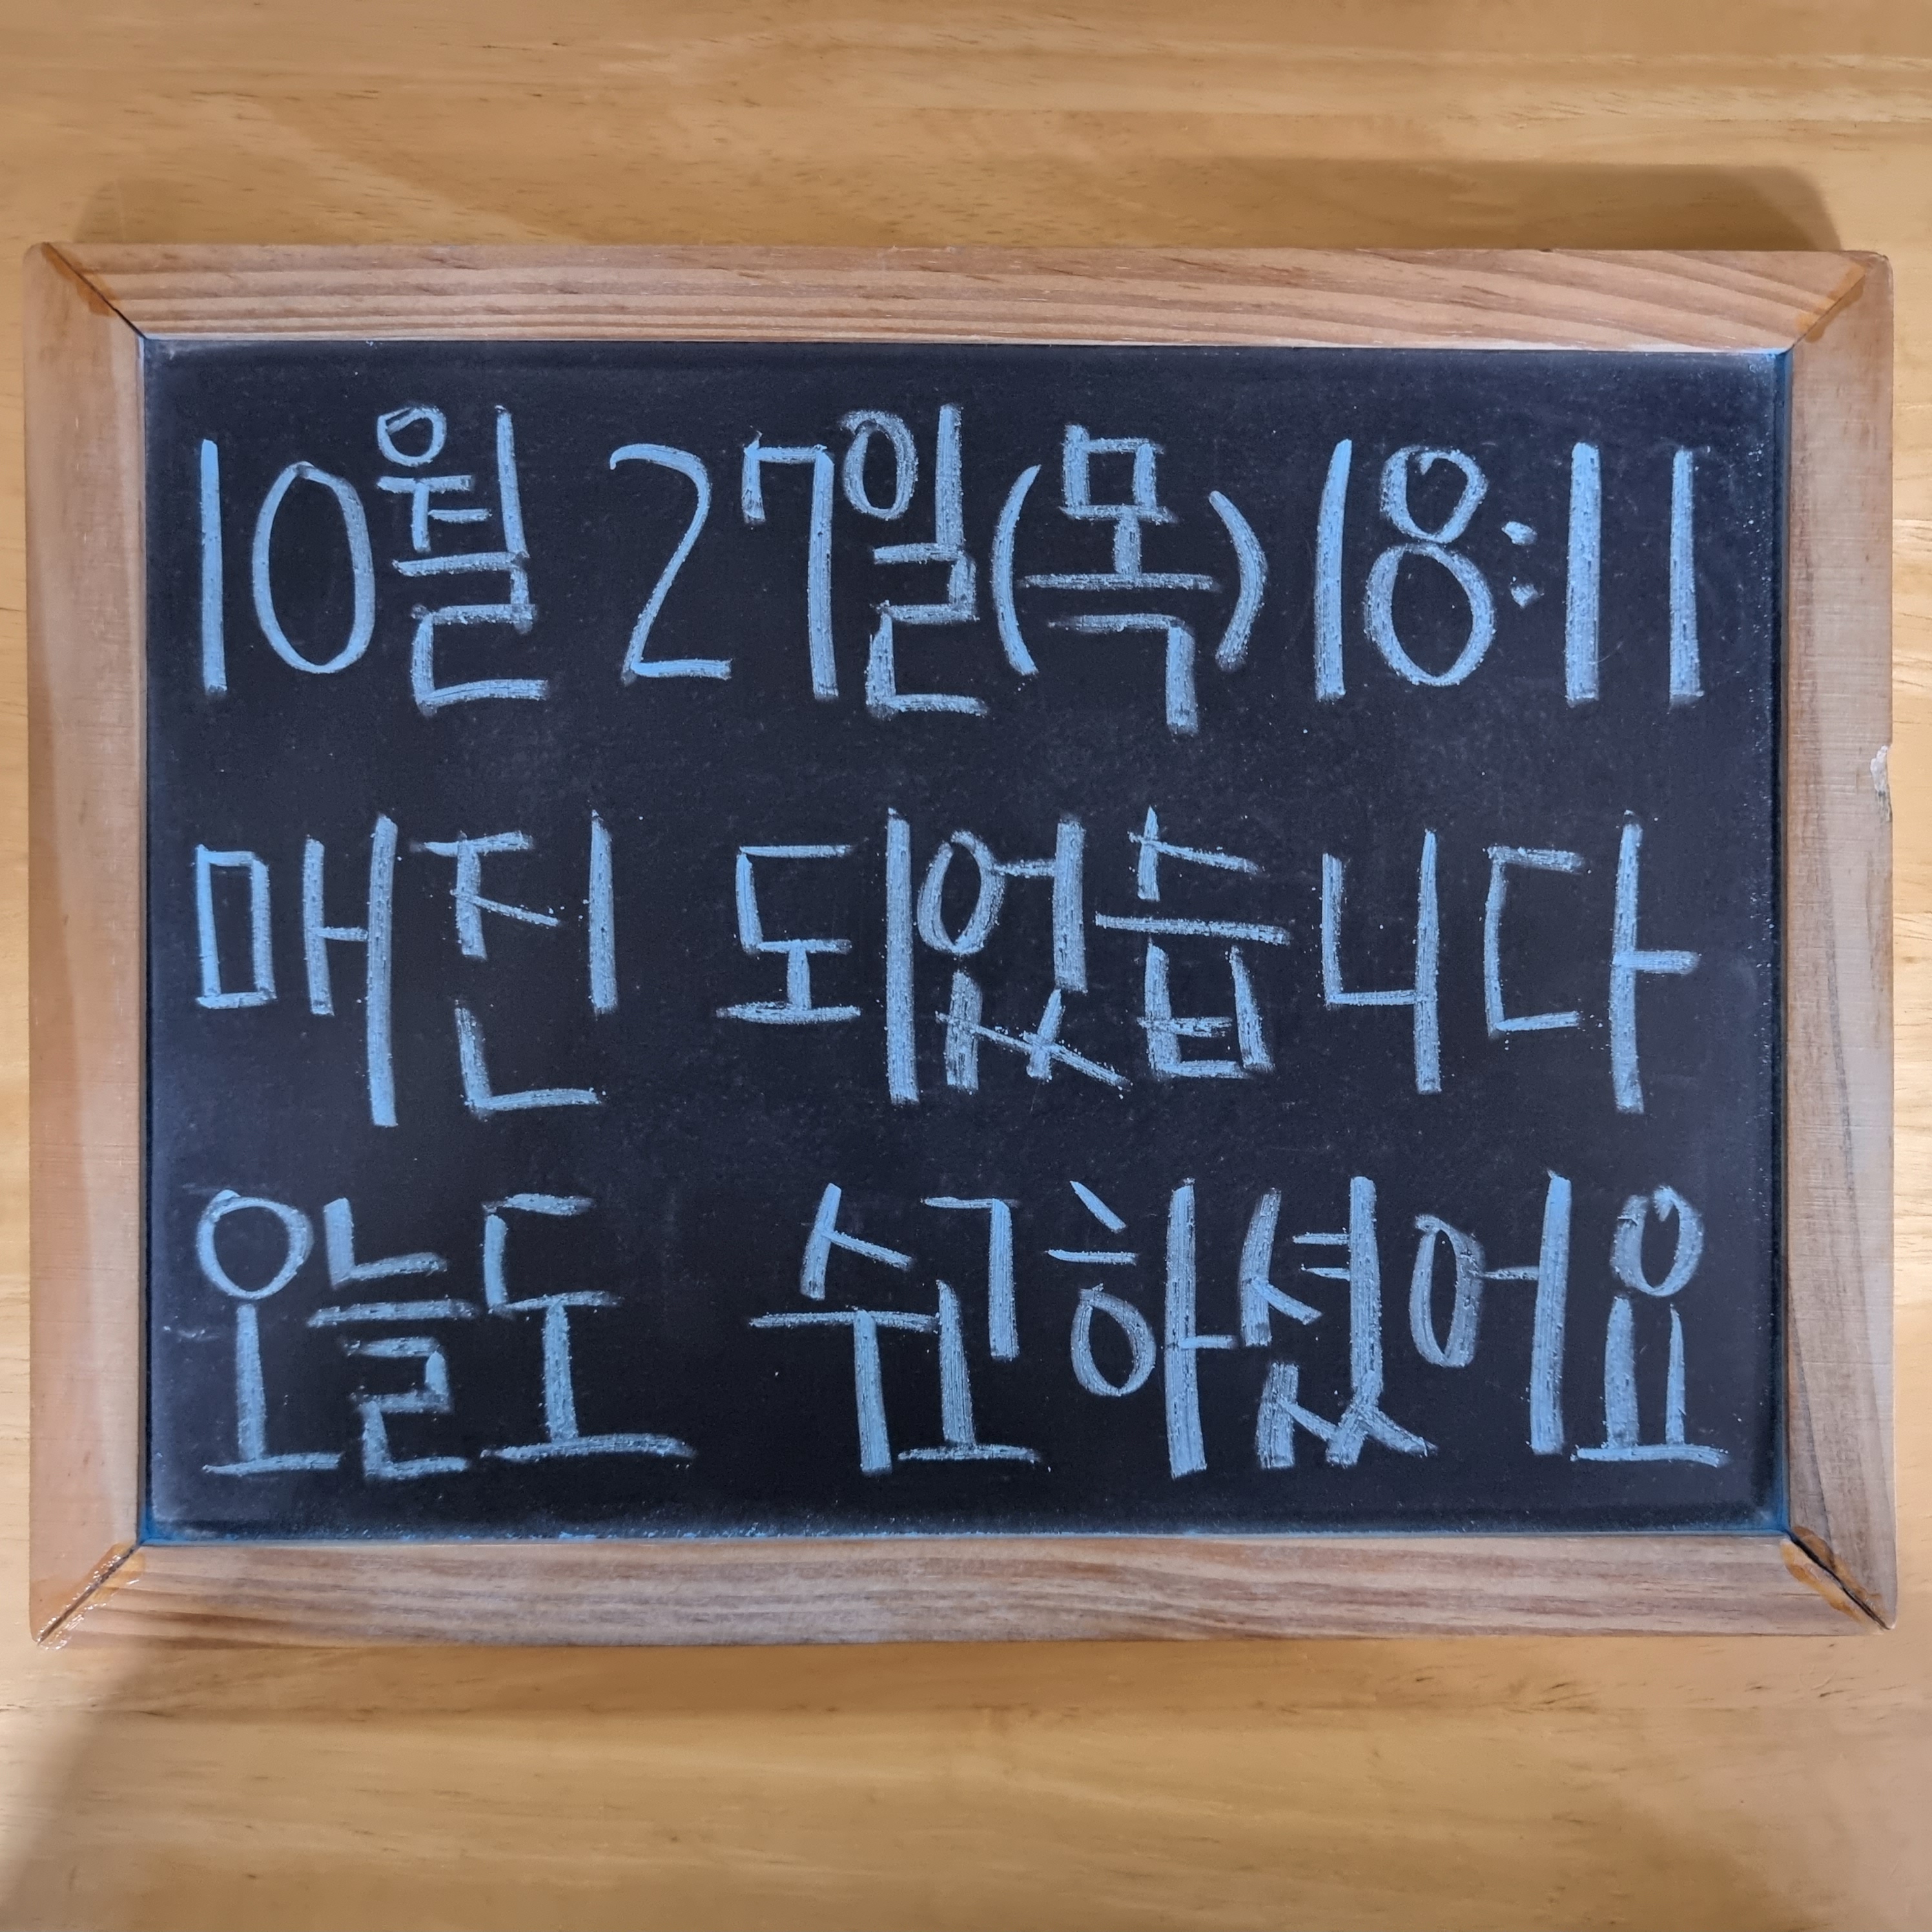 10월 27일(목) 18:11
매진 되었습니다
오늘도 수고하셨어요